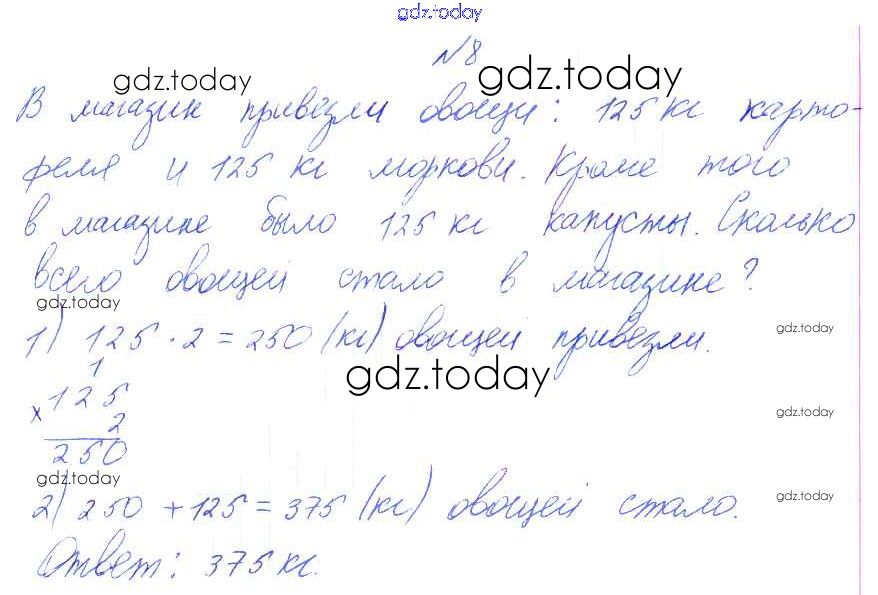 gdz.today
№8
gdz.today gdz.today
В магазин привезли овощи: 125 кг карто-
феля и 125 кг моркови. Кроме того
в магазине было 125 кг капусты. Сколько
всего овощей стало в магазине?
gdz.today
1) 125 · 2 = 250 (кг) овощей привезли.
gdz.today
1
gdz.today
× 125
gdz.today
2
250
gdz.today
gdz.today
2) 250 + 125 = 375 (кг) овощей стало.
Ответ: 375 кг.